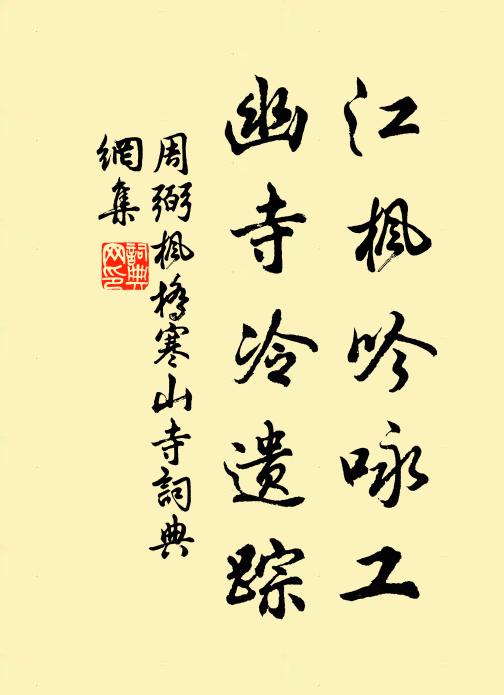 江枫吟咏工
幽寺冷遗踪
周弼枫桥寒山寺詞典
網集
詞典
网印